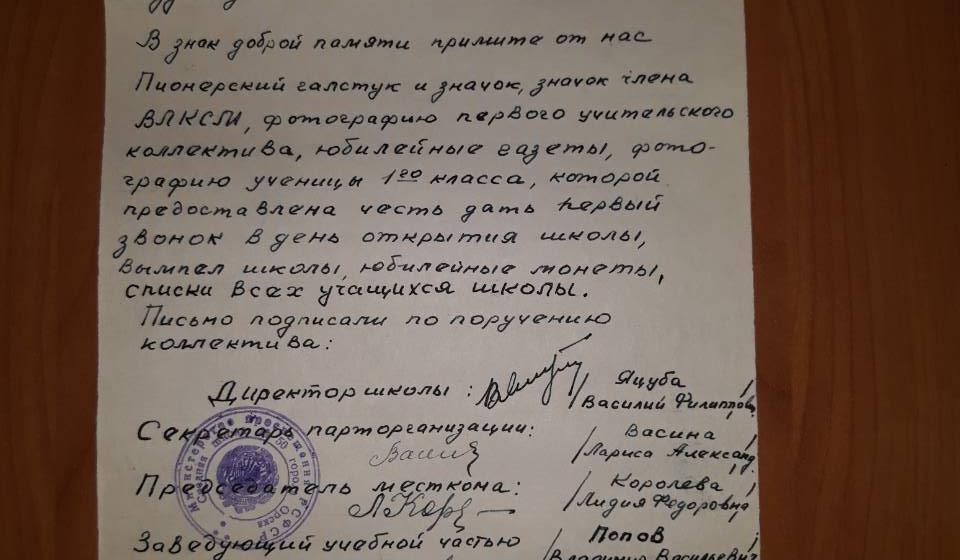 В знак доброй памяти примите от нас
Пионерский галстук и значок, значок члена
ВЛКСМ, фотографию первого учительского
коллектива, юбилейные газеты, фото-
графию ученицы 1го класса, которой
предоставлена честь дать первый
звонок в день открытия школы,
вымпел школы, юбилейные монеты,
списки всех учащихся школы.
Письмо подписали по поручению
коллектива:
Директор школы: /Яцуба
Василий Филиппов/
Секретарь парторганизации: /Васина
Лариса Александ/
Председатель месткома: /Королева
Лидия Федоровна/
Заведующий учебной частью Попов
/Владимир Васильевич
Министерство Просвещения РСФСР
Средняя школа №50 города Орска